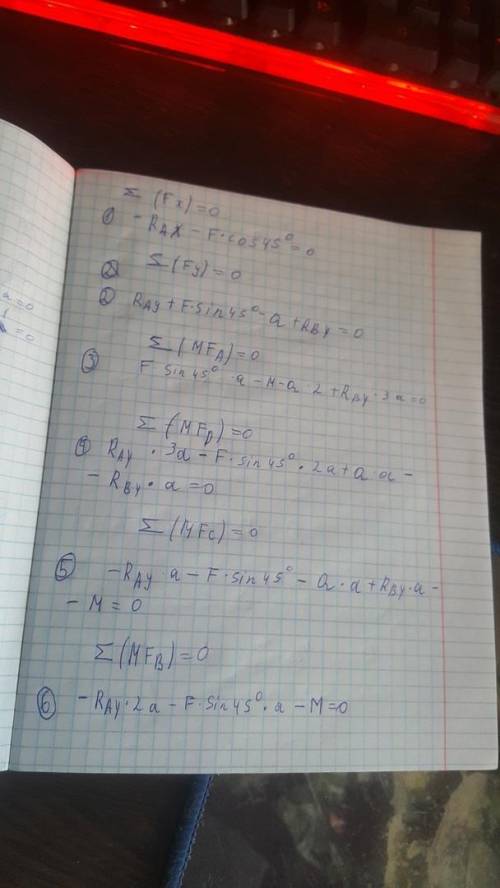 Σ (Fx)=0
① -RAX - F·cos45°=0
② Σ(Fy)=0
② RAy+F·sin45°-Q+RBy=0
Σ(MFA)=0
③ F·sin45°·a-M-Q·2+RBy·3a=0
Σ(MFD)=0
④ RAy·3a-F·sin45°·2a+Q·a-
-RBy·a=0
Σ(MFc)=0
⑤ -RAy·a-F·sin45°-Q·a+RBy·a-
-M=0
Σ(MFB)=0
⑥ -RAy·2a-F·sin45°·a-M=0
a=0
=0